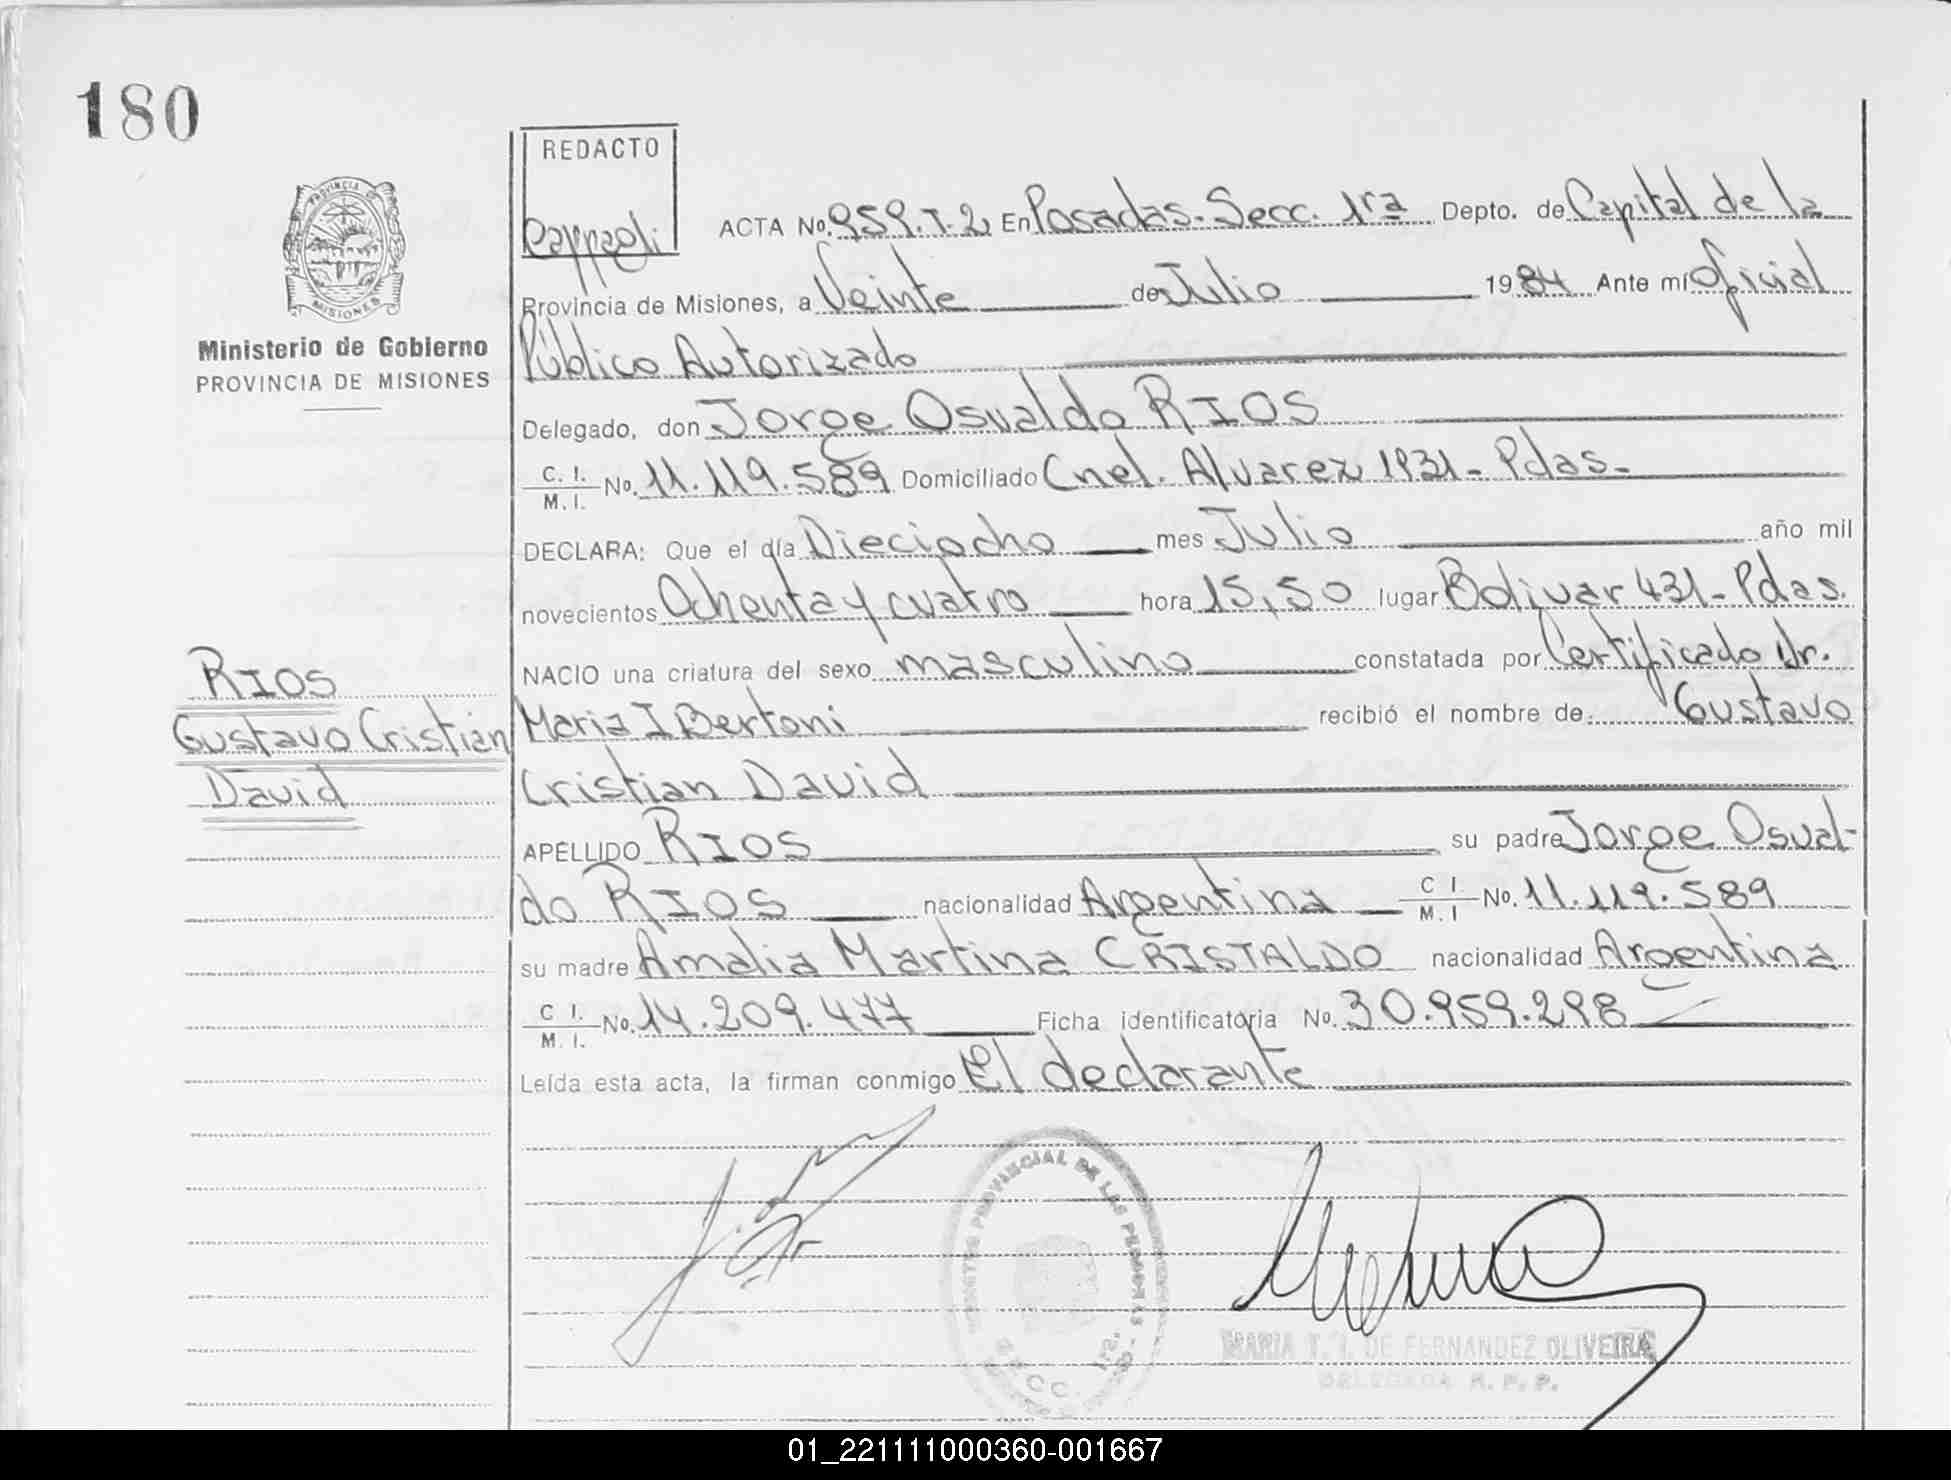 180
REDACTO
PROVINCIA DE
MISIONES
ACTA No. 959.T.2 En Posadas. Secc. 1ra Depto. de Capital de la
Provincia de Misiones, a Veinte de Julio 1984 Ante mí Oficial
Ministerio de Gobierno
PROVINCIA DE MISIONES
Público Autorizado
Delegado, don Jorge Osvaldo RIOS
C. I.
M. I. No. 11.119.589 Domiciliado Cnel. Alvarez 1931 - Pdas -
DECLARA: Que el día Dieciocho mes Julio año mil
novecientos Ochenta y cuatro hora 15,50 lugar Bolivar 431 - Pdas.
NACIO una criatura del sexo masculino constatada por Certificado Dr.
Maria I Bertoni recibió el nombre de: Gustavo
Cristian David
RIOS
Gustavo Cristian
David
APELLIDO RIOS su padre Jorge Osval-
do RIOS nacionalidad Argentina C I.
M. I No. 11.119.589
su madre Amalia Martina CRISTALDO nacionalidad Argentina
C I.
M. I. No. 14.209.477 Ficha identificatoria No. 30.959.298
Leída esta acta, la firman conmigo El declarante
PROVINCIAL DE LAS PERSONAS
SECC. 1ra.
MARIA T. I. DE FERNANDEZ OLIVEIRA
DELEGADA R. P. P.
01_221111000360-001667